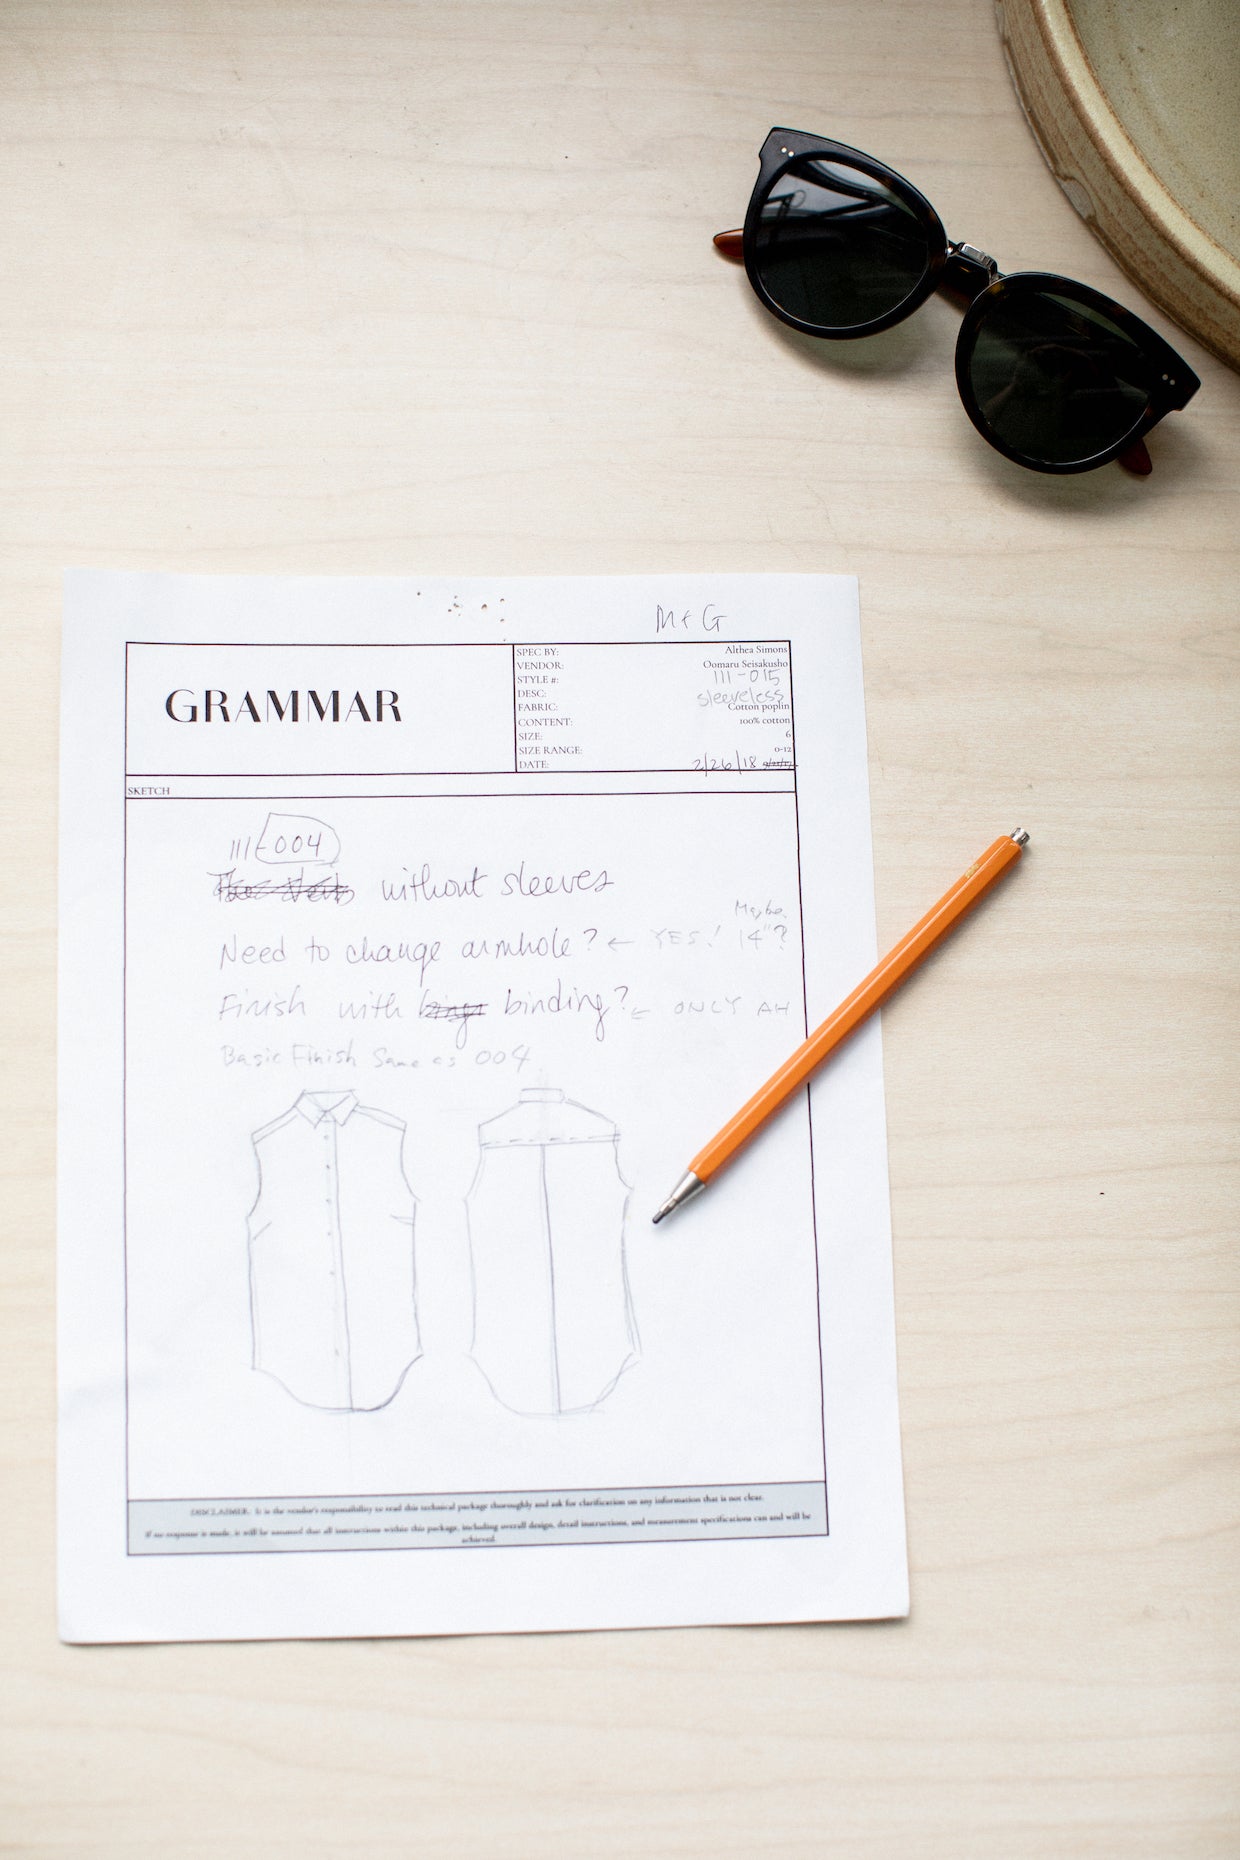 M+G
GRAMMAR
SPEC BY: Althea Simons
VENDOR: Oomaru Seisakusho
STYLE #: 111-015
DESC: sleeveless
FABRIC: Cotton poplin
CONTENT: 100% cotton
SIZE: 6
SIZE RANGE: 0-12
DATE: 2/26/18
SKETCH
111-004
without sleeves
Need to change armhole? ← YES! Maybe 14"?
Finish with binding? ← ONLY AH
Basic Finish Same as 004
DISCLAIMER: It is the vendor's responsibility to read this technical package thoroughly and ask for clarification on any information that is not clear.
If no response is made, it will be assumed that all instructions within this package, including overall design, detail instructions, and measurement specifications can and will be
achieved.